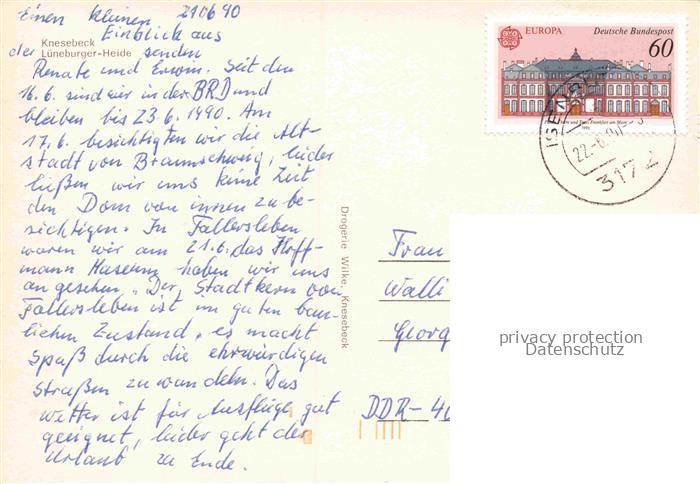 Einen kleinen 210690
Einblick aus
Knesebeck
der Lüneburger-Heide senden
Renate und Erwin. Seit den
16.6. sind wir in der BRD und
bleiben bis 23.6.1990. Am
17.6. besichtigten wir die Alt-
stadt von Braunschweig, leider
ließen wir uns keine Zeit
den Dom von innen zu be-
sichtigen. In Fallersleben
waren wir am 21.6. das Hoff-
mann Museum haben wir uns
angesehen. Der Stadtkern von
Fallersleben ist im guten bau-
lichen Zustand, es macht
Spaß durch die ehrwürdigen
Straßen zu wandeln. Das
Wetter ist für Ausflüge gut
geeignet, leider geht der
Urlaub zu Ende.
Drogerie Wilke, Knesebeck
EUROPA Deutsche Bundespost
60
Thurn und Taxis Frankfurt am Main
1990
ISEN
22.-6.90
3172
Frau
Walli
Georg
DDR-40
privacy protection
Datenschutz